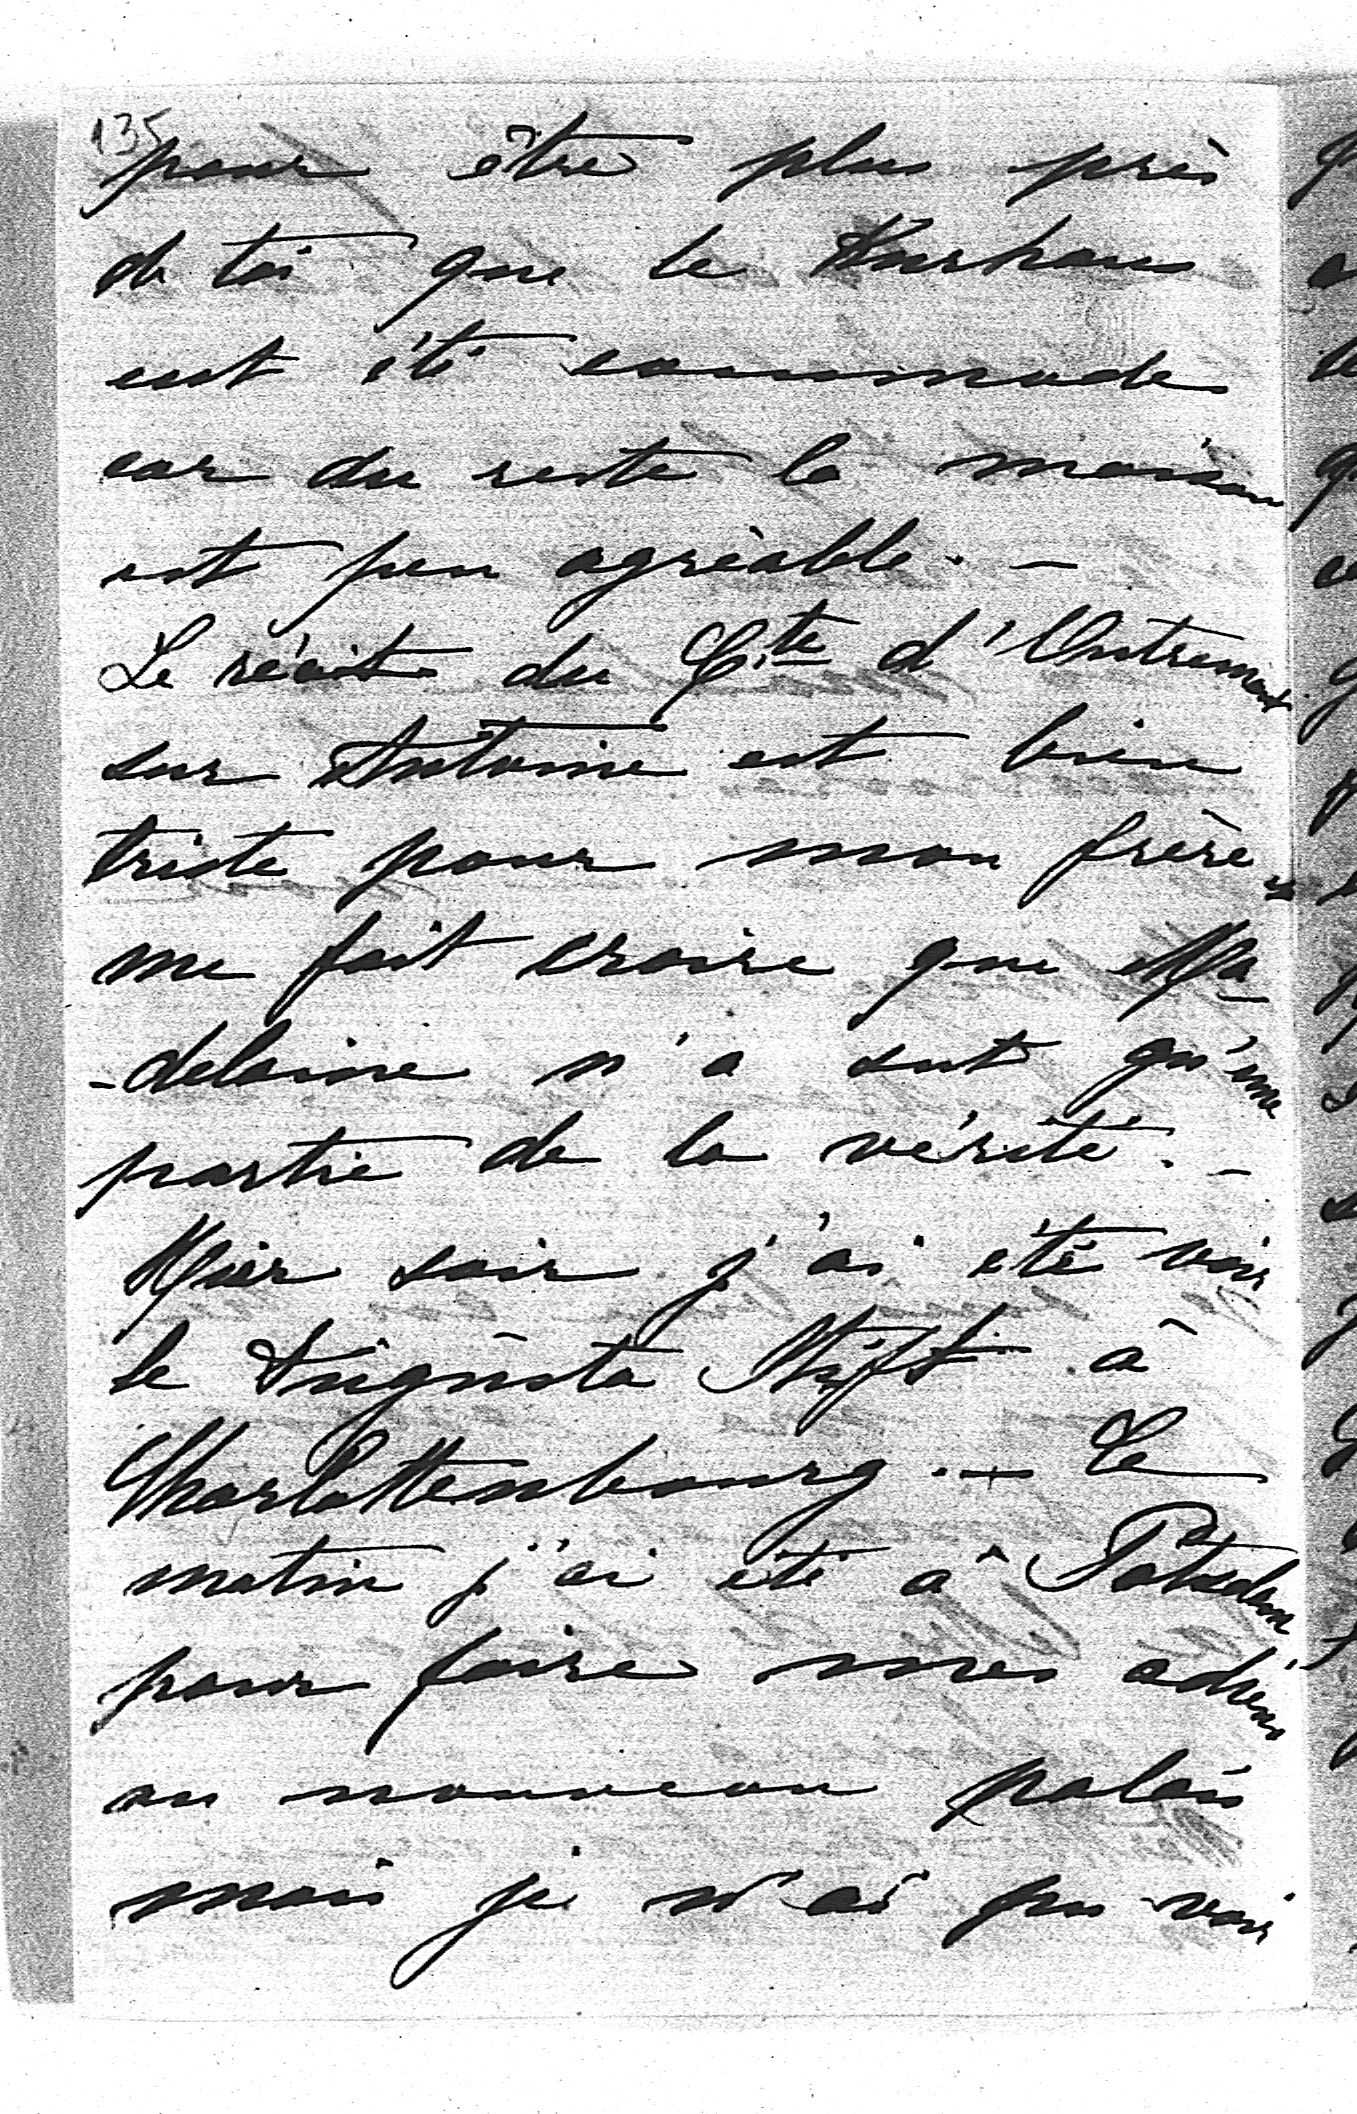 135
pour être plus près
de toi que le Kurhaus
eut été commode
car du reste la maison
est peu agréable. —
Le récit du Cte d'Outremont
sur Antoine est bien
triste pour mon frère et
me fait croire que Ma-
-delaine n'a sut qu'une
partie de la vérité. —
Hier soir j'ai été voir
le Augusta Stift à
Charlottenbourg. — Le
matin j'ai été à Potsdam
pour faire mes adieux
au nouveau palais
mais je n'ai pu voir